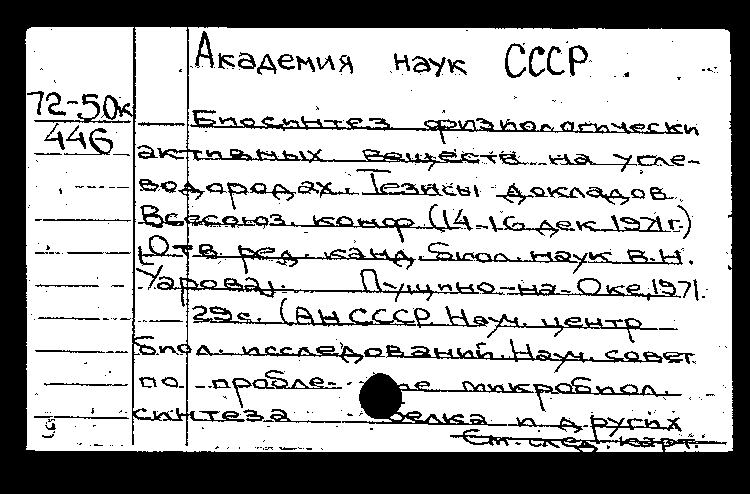 Академия наук СССР
72-50к
446
Биосинтез физиологически
активных веществ на угле-
водородах. Тезисы докладов
Всесоюз. конф (14-16 дек 1971г.)
[Отв ред. канд. биол. наук В.Н.
Уарова]. Пущино-на-Оке, 1971.
29с. (АН СССР Науч. центр
биол. исследований. Науч. совет
по пробле- ме микробиол.
синтеза белка и других
См. след. карт.